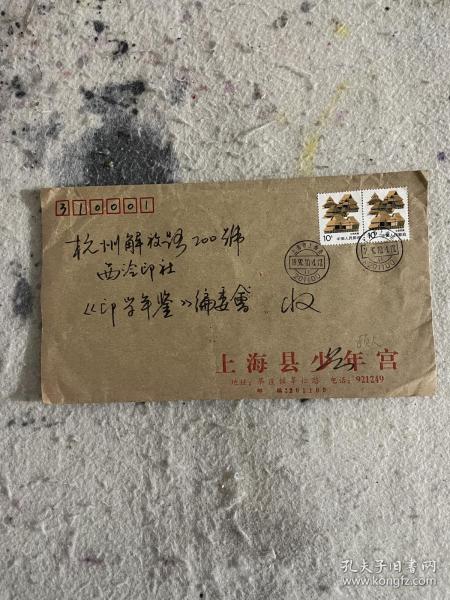 310001
杭州解放路200號
西泠印社
《印学年鉴》编委會 收
10分 中国人民邮政
10分 中国人民邮政
201100
201100
上海县少年宫
电话：921249
邮 编：201100
孔夫子旧书网
www.kongfz.com